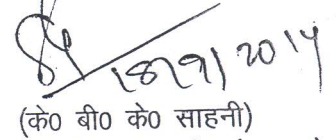 18/9/2014
(के0 बी0 के0 साहनी)